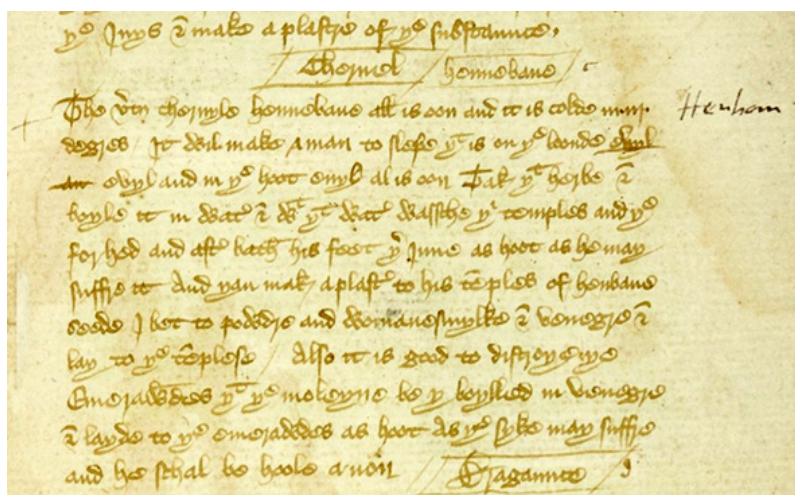 yͤ Juys & make a plastre of yͤ substaunce.
Chernel hennebane
The vtu chernyle hennebane all is oon and it is colde in iiij.
degres . It wil make a man to slepe yᵗ is on yͤ woude
evyl and in yͤ hoot evyl al is oon Tak yᵗ herbe &
boyle it in watʳ & wᵗ yᵗ watʳ wassche yͤ temples and yͤ
for hed and aftʳ bath his feet yʳ Inne as hoot as he may
suffre it And yan mak a plastʳ to his tēples of henbane
seede I bet to powdre and womanesmylke & venegre &
lay to yͤ tēplese / Also it is good to distroye
Emerawdes yᵗ yͤ moleyne be y boylled in venegre
& layde to yͤ emerawdes as hoot as yͤ syke may suffre
and he schal be hoole a non Dragaunce
Henbam